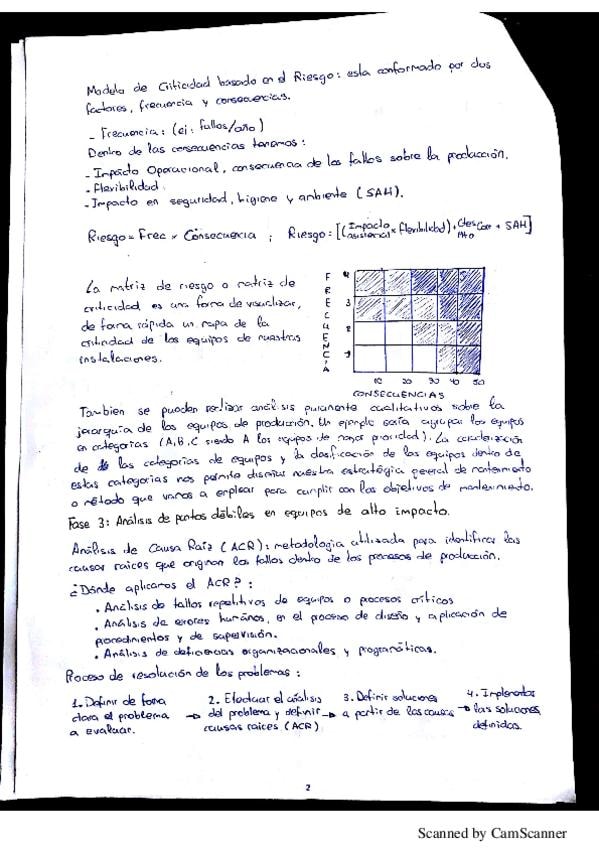 Modelo de Criticidad basado en el Riesgo: esta conformado por dos
factores, frecuencia y consecuencias.
- Frecuencia: (ej: fallos/año)
Dentro de las consecuencias tenemos:
- Impacto Operacional, consecuencia de los fallos sobre la producción.
- Flexibilidad.
- Impacto en seguridad, higiene y ambiente (SAH).
Riesgo = Frec x Consecuencia ; Riesgo = [(Impacto x Flexibilidad) + + SAH]
La matriz de riesgo o matriz de
criticidad es una forma de visualizar,
de forma rápida un mapa de la
criticidad de los equipos de nuestras
instalaciones.
FRECUENCIA
4
3
2
1
10 20 30 40 50
CONSECUENCIAS
Tambien se pueden realizar análisis puramente cualitativos sobre la
jerarquía de los equipos de producción. Un ejemplo sería agrupar los equipos
en categorias (A,B,C siendo A los equipos de mayor prioridad). La caracterización
de las categorias de equipos y la clasificación de los equipos dentro de
estas categorias nos permite diseñar nuestra estratégia general de mantenimiento
o método que vamos a emplear para cumplir con los objetivos de mantenimiento.
Fase 3: Análisis de puntos débiles en equipos de alto impacto.
Análisis de Causa Raíz (ACR): metodología utilizada para identificar las
causas raices que originan los fallos dentro de los procesos de producción.
¿Dónde aplicamos el ACR?:
. Análisis de fallos repetitivos de equipos o procesos críticos
. Análisis de errores humanos, en el proceso de diseño y aplicación de
procedimientos y de supervisión.
. Análisis de deficiencias organizacionales y programáticas.
Proceso de resolución de los problemas:
1. Definir de forma 2. Efectuar el análisis 3. Definir soluciones 4. Implementar
clara el problema → del problema y definir → a partir de las causas → las soluciones
a evaluar. causas raices (ACR) definidas.
2
Scanned by CamScanner